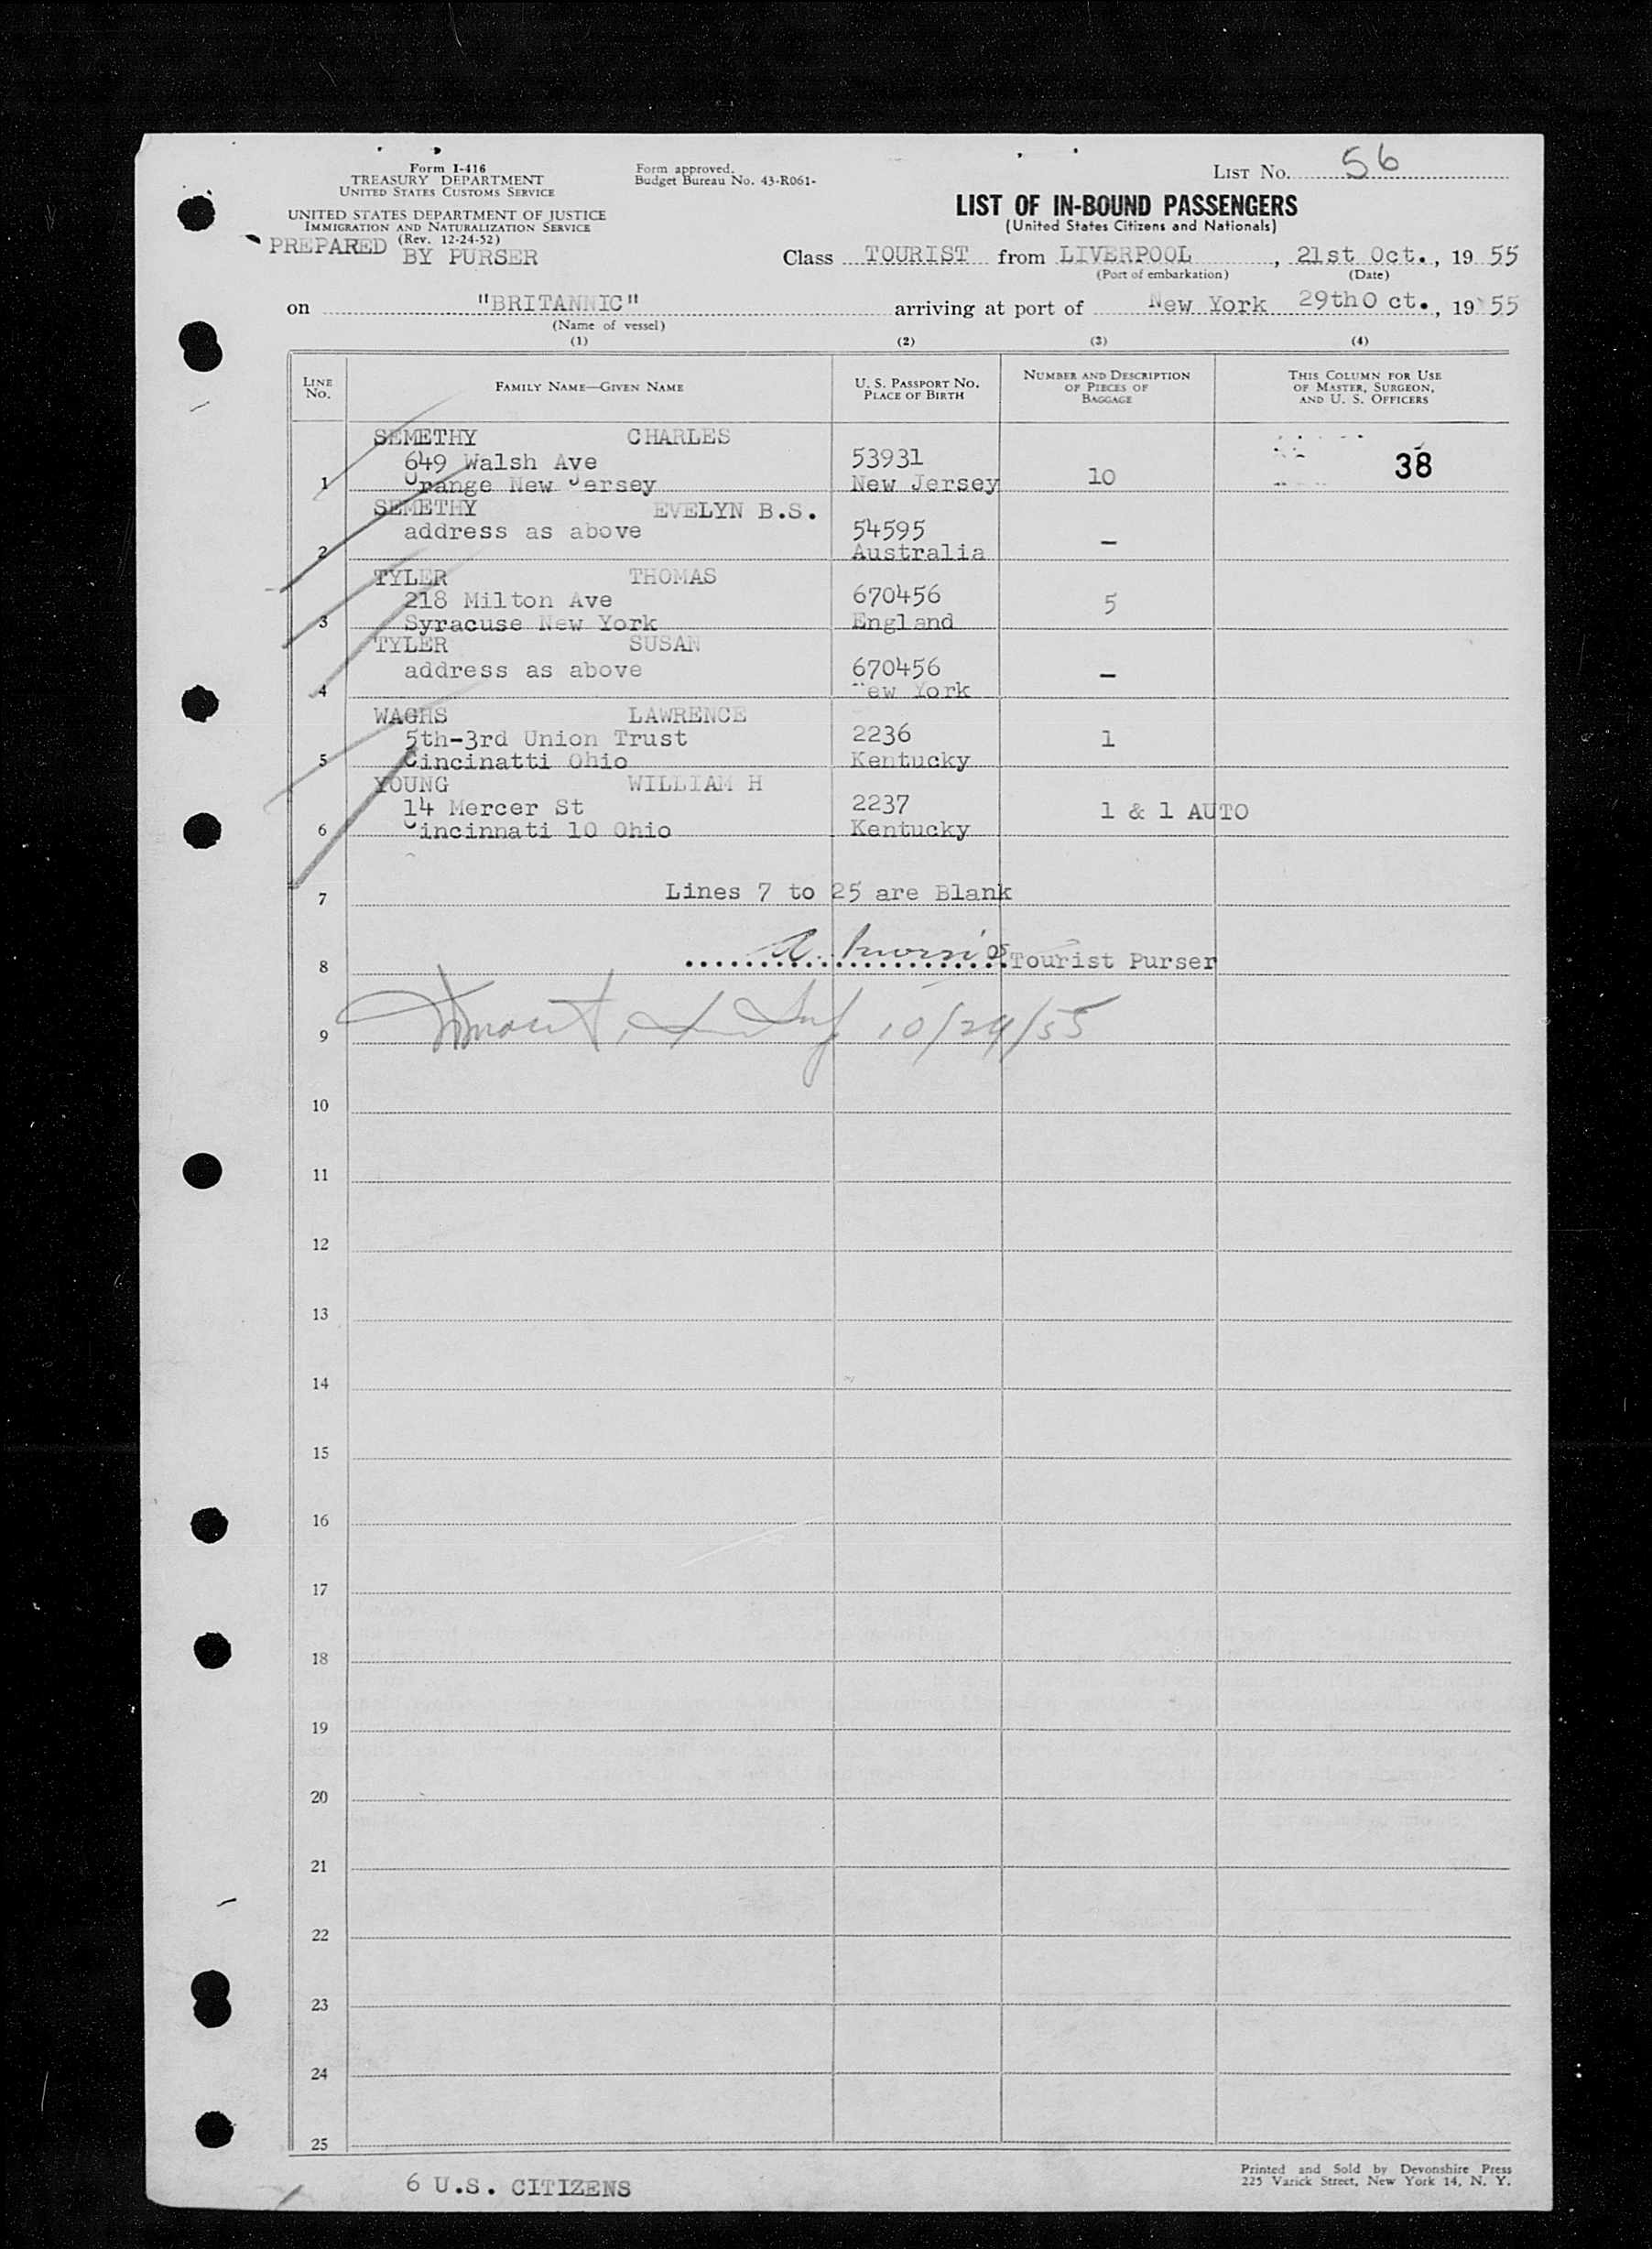 Form I-416
TREASURY DEPARTMENT
UNITED STATES CUSTOMS SERVICE
UNITED STATES DEPARTMENT OF JUSTICE
IMMIGRATION AND NATURALIZATION SERVICE
(Rev. 12-24-52)
PREPARED BY PURSER
Form approved.
Budget Bureau No. 43-R061-
LIST NO. 56
LIST OF IN-BOUND PASSENGERS
(United States Citizens and Nationals)
Class TOURIST from LIVERPOOL, 21st Oct., 19 55
(Port of embarkation) (Date)
on "BRITANNIC" arriving at port of New York 29thO ct., 19 55
(Name of vessel)
(1) (2) (3) (4)
LINE NO.
FAMILY NAME—GIVEN NAME
U. S. PASSPORT NO.
PLACE OF BIRTH
NUMBER AND DESCRIPTION
OF PIECES OF
BAGGAGE
THIS COLUMN FOR USE
OF MASTER, SURGEON,
AND U. S. OFFICERS
SEMETHY CHARLES
649 Walsh Ave 53931 38
1 Orange New Jersey New Jersey 10
SEMETHY EVELYN B.S.
address as above 54595
2 Australia —
TYLER THOMAS
218 Milton Ave 670456 5
3 Syracuse New York England
TYLER SUSAN
address as above 670456 —
4 New York
WAGHS LAWRENCE
5th-3rd Union Trust 2236 1
5 Cincinatti Ohio Kentucky
YOUNG WILLIAM H
14 Mercer St 2237 1 & 1 AUTO
6 Cincinnati 10 Ohio Kentucky
7 Lines 7 to 25 are Blank
8 Tourist Purser
9 10/29/55
10
11
12
13
14
15
16
17
18
19
20
21
22
23
24
25
6 U.S. CITIZENS
Printed and Sold by Devonshire Press
225 Varick Street, New York 14, N. Y.